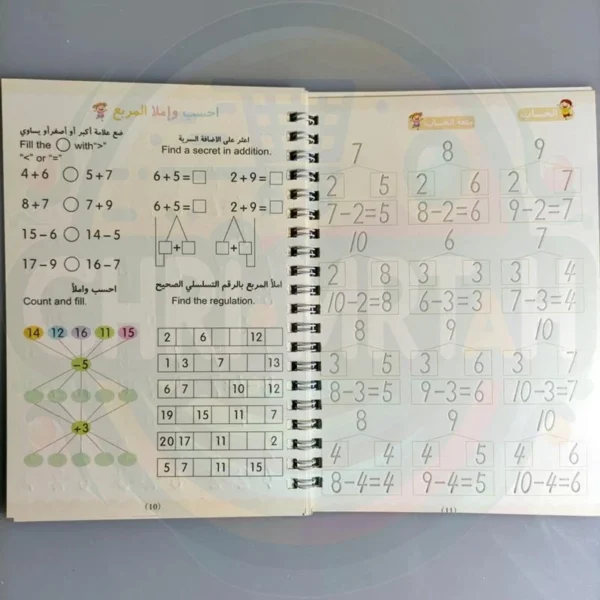 احسب وإملا المربع
ضع علامة أكبر أو أصغر أو يساوي
Fill the ○ with ">"
"<" or "="
4+6 ○ 5+7
8+7 ○ 7+9
15-6 ○ 14-5
17-9 ○ 16-7
اعثر على الاضافة السرية
Find a secret in addition.
6+5=□ 2+9=□
6+5=□ 2+9=□
□+□ □+□
احسب واملأ
Count and fill.
14 12 16 11 15
-5
+3
املأ المربع بالرقم التسلسلي الصحيح
Find the regulation.
2 6 12
1 3 7 13
6 7 10 12
19 15 11 7
20 17 11 2
5 7 11 15
(10)
7 8 9
2 5 2 6 2 7
7-2=5 8-2=6 9-2=7
10 6 7
2 8 3 3 3 4
10-2=8 6-3=3 7-3=4
8 9 10
3 5 3 6 3 7
8-3=5 9-3=6 10-3=7
8 9 10
4 4 4 5 4 6
8-4=4 9-4=5 10-4=6
(11)